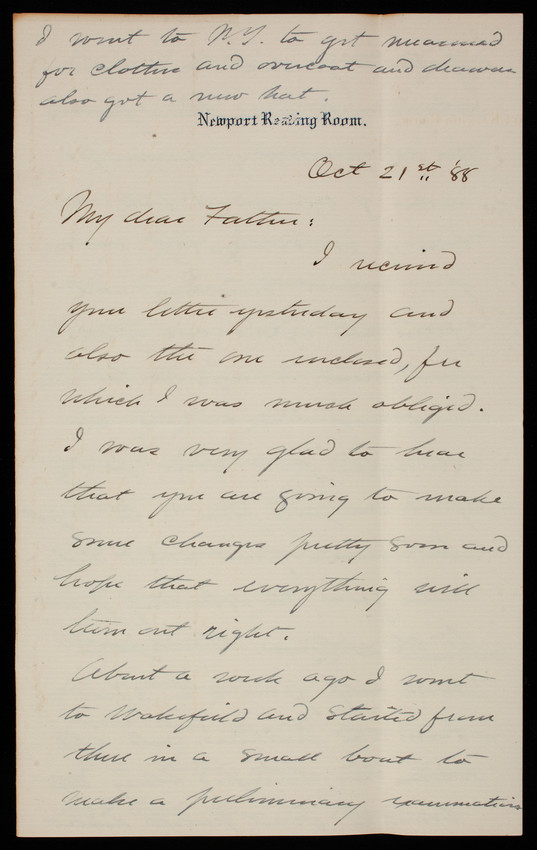 I went to N.Y. to get measured
for clothes and overcoat and drawers
also got a new hat.
Newport Reading Room.
Oct 21st '88
My dear Father:
I received
your letter yesterday and
also the one inclosed, for
which I was much obliged.
I was very glad to hear
that you are going to make
some changes pretty soon and
hope that everything will
turn out right.
About a week ago I went
to Wakefield and started from
there in a small boat to
make a preliminary examination